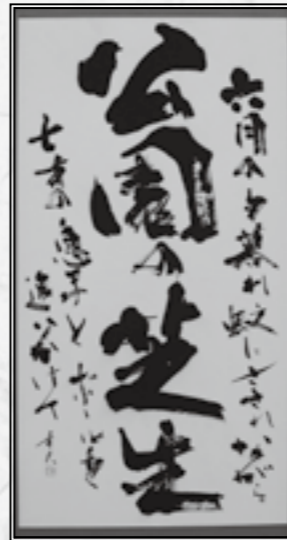 六月の夕暮れ蚊にさされながら
公園の芝生
七才の息子とボールを
追いかけて